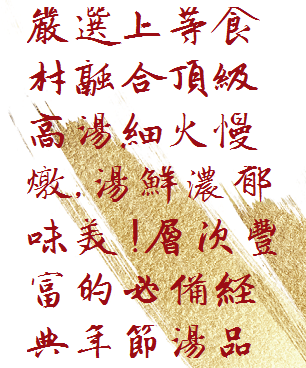 嚴選上等食
材融合頂級
高湯,細火慢
燉,湯鮮濃郁
味美!層次豐
富的必備經
典年節湯品